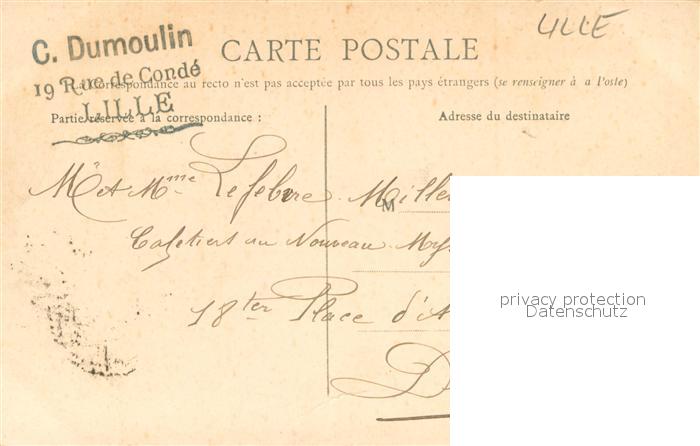 LILLE
C. Dumoulin
19 Rue de Condé
LILLE
CARTE POSTALE
La Correspondance au recto n'est pas acceptée par tous les pays étrangers (se renseigner à a Poste)
Partie réservée à la correspondance :
Adresse du destinataire
Mr et Mme Lefebvre
M
Cafetiers au Nouveau
18 ter Place d'A
D
privacy protection
Datenschutz